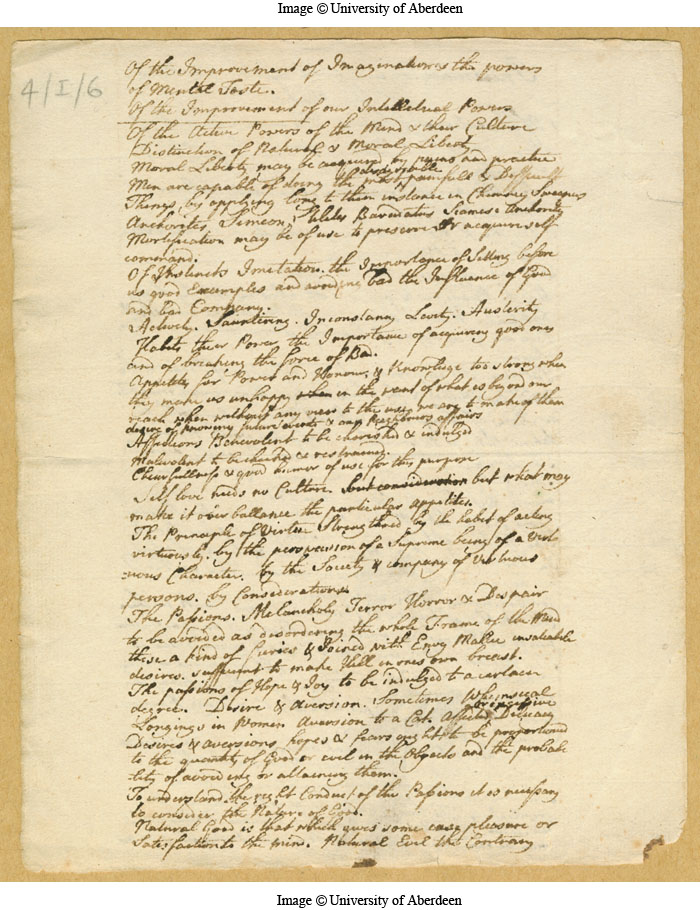 Image © University of Aberdeen
4/I/6
Of the Improvement of Imagination & the powers
of Mental Taste.
Of the Improvement of our Intellectual Powers
Of the Active Powers of the Mind & their Culture
Distinction of Natural & Moral Liberty
Moral Liberty may be acquired by pains and practice
Men are capable of doing the most painfull & Difficult
Things, by applying long to them instance in Chimney Sweepers
Anchorites, Simeon Stilites
Mortification may be of use to preserve or acquire self
command.
Of Instincts Imitation. the Importance of Setting before
us good Examples and avoiding bad the Influence of Good
and bad Company.
Activity. Sauntering. Inconstancy Levity. Austerity
Habits their Power the Importance of acquiring good ones
and of breaking the force of Bad.
Appetites for Power and Honour, & Knowledge too strong when
they make us unhappy when in the want of what is beyond our
reach when without any view to the use we are to make of them
desire of knowing future events & our Neighbours affairs
Affections Benevolent to be cherished & indulged
Malevolent to be checked & restrained.
Chearfullness & good humor of use for this purpose
Self love needs no Culture. but consideration but what may
make it over ballance the particular appetites.
The Principle of Virtue Strengthned by the habit of acting
virtuously. by the perswasion of a Supreme being of a virt
uous Character. by the Society & company of Virtuous
persons. by Considerations
The Passions. Melancholy Terror Horror & Despair
to be avoided as disordering the whole Frame of the Mind
these a kind of Furies & Joined with Envy Malice insatiable
desires. sufficient to make Hell in ones own breast.
The passions of Hope & Joy to be indulged to a certain
degree. Desire & Aversion. Sometimes Whimsical
or excessive
Longings in Women Aversion to a Cat. Affected Delicacy
Desires & aversions, hopes & fears ought to be proportioned
to the quantity of Good or evil in the Objects and the probabi
-lity of avoiding or attaining them.
To understand the right Conduct of the Passions it is necessary
to consider the Nature of Good.
Natural Good is that which gives some easy pleasure or
Satisfaction to the mind. Natural Evil the Contrary
Image © University of Aberdeen